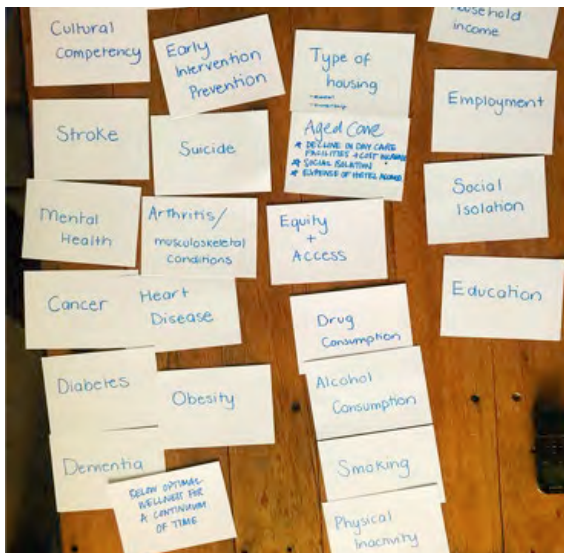 Cultural
Competency
Early
Intervention
Prevention
Type of
housing
income
Stroke
Suicide
Aged Care
* DECLINE IN DAY CARE
FACILITIES + COST
* SOCIAL ISOLATION
* EXPENSE OF
Employment
Mental
Health
Arthritis/
musculoskeletal
conditions
Equity
+
Access
Social
Isolation
Cancer
Heart
Disease
Drug
Consumption
Education
Diabetes
Obesity
Alcohol
Consumption
Dementia
BELOW OPTIMAL
WELLNESS FOR
A CONTINUUM
OF TIME
Smoking
Physical
Inactivity